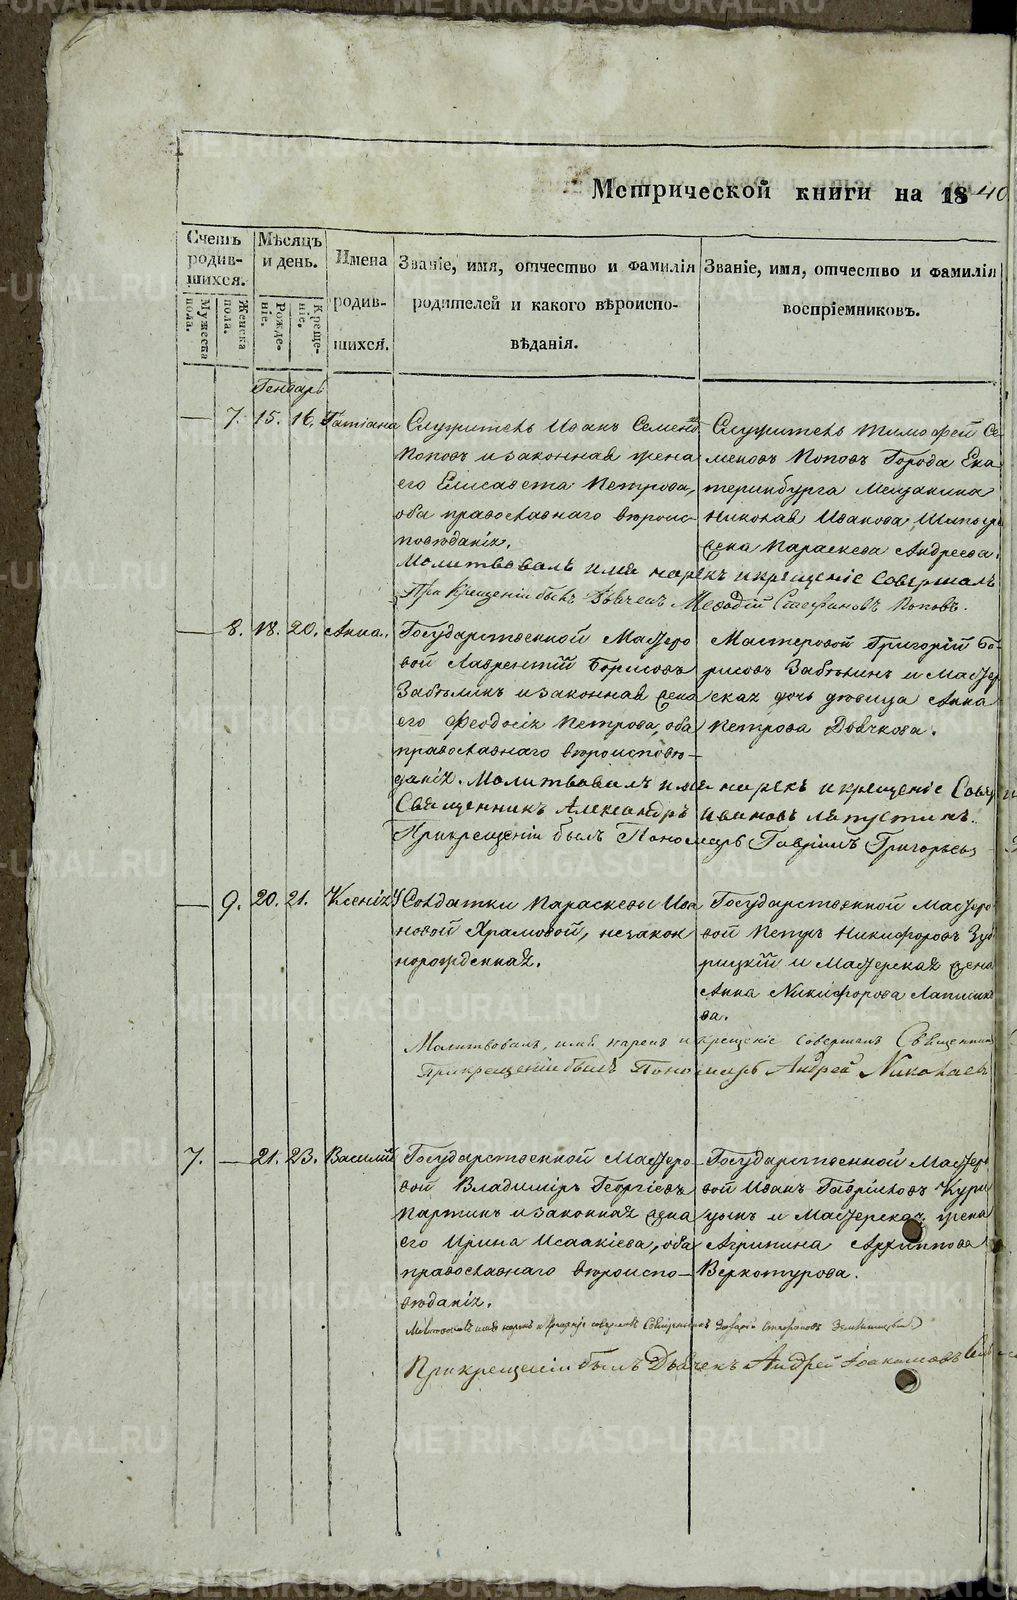 Метрической книги на 1840
Счетъ родив-шихся.
Мѣсяцъ и день.
Имена родив-шихся.
Званіе, имя, отчество и фамилія родителей и какого вѣроиспо-вѣданія.
Званіе, имя, отчество и фамилія воспріемниковъ.
Мужеска пола.
Женска пола.
Рожде-ніе.
Креще-ніе.
Генварь
— 7. 15. 16. Татіана
Служитель Иванъ Семеновъ
Поповъ и законная жена
его Елисавета Петрова,
оба православнаго вѣроис-
повѣданія.
Служитель Тимофей Се-
меновъ Поповъ Города Ека
теринбурга Мещанина
Николая Иванова
жена Параскева Андреева.
Молитвовалъ имя нарекъ и крещеніе совершалъ
При Крещеніи былъ Дьячекъ Мефодій Стефановъ Поповъ.
— 8. 18. 20. Анна.
Государственной Мастеро
вой Лаврентій Борисовъ
Забѣлинъ и законная жена
его Феодосія Петрова, оба
православнаго вѣроисповѣ-
данія.
Мастеровой Григорій Бо-
рисовъ Забѣлинъ и Мастер
ская дочь девица Анна
Петрова Дьячкова.
Молитвовалъ имя нарекъ и крещеніе Совер
Священникъ Александръ Ивановъ Лапустинъ.
При крещеніи былъ Пономарь Гавріилъ Григорьевъ
— 9. 20. 21. Ксенія
Солдатки Параскевы Ива
новой Храмовой, незакон
норожденная.
Государственной Мастеро
вой Петръ Никифоровъ Зуб
рицкій и Мастерская жена
Анна Никифорова Лапшик
ва.
Молитвовалъ, имя нарекъ и крещеніе совершалъ Священник
При крещеніи былъ Пономарь Андрей Николаевъ
7. — 21. 23. Василій
Государственной Мастеро-
вой Владиміръ Георгіевъ
Партинъ и законная жена
его Ирина Исаакіева, оба
православнаго вѣроиспо-
вѣданія.
Государственной Мастеро
вой Иванъ Гавриловъ Кури
цынъ и Мастерская жена
Агрипина Архиппова
Верхотурова.
Молитвовалъ имя нарекъ и крещеніе совершалъ Священникъ Захарій Стефановъ
При крещеніи былъ Дьячекъ Андрей Іоакимовъ
METRIKI.GASO-URAL.RU